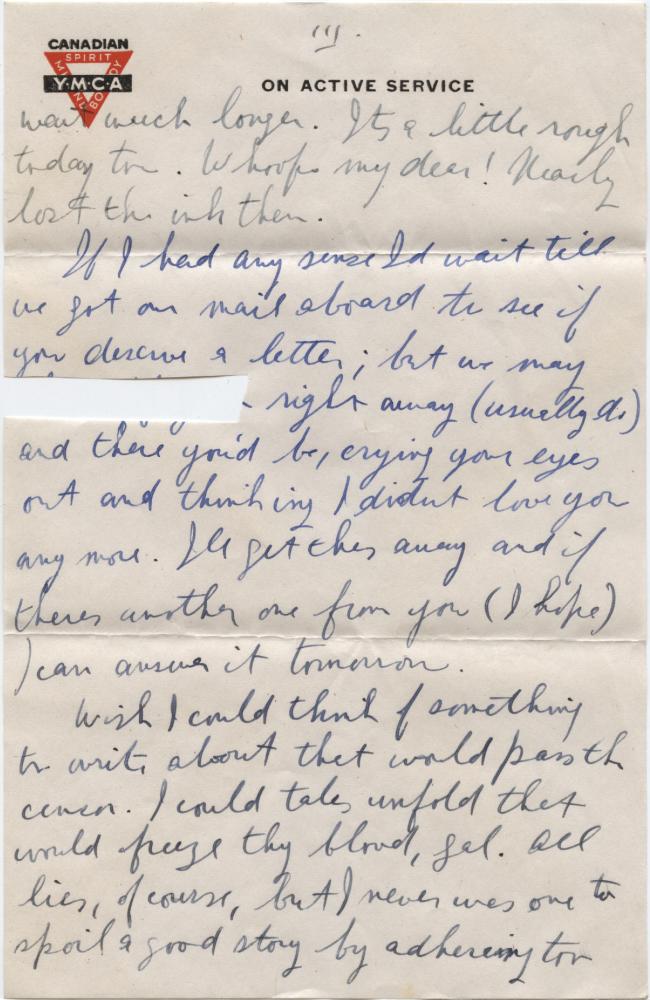 III.
CANADIAN
SPIRIT
MIND
BODY
Y·M·C·A
ON ACTIVE SERVICE
wait much longer. Its a little rough
today too. Whoops my dear! Nearly
lost the ink then.
If I had any sense I'd wait till
we got our mail aboard to see if
you deserve a letter; but we may
right away (usually do)
and there you'd be, crying your eyes
out and thinking I didn't love you
any more. I'll get this away and if
theres another one from you (I hope)
I can answer it tomorrow.
Wish I could think of something
to write about that would pass the
censor. I could tales unfold that
would freeze thy blood, gal. All
lies, of course, but I never was one to
spoil a good story by adhereing too